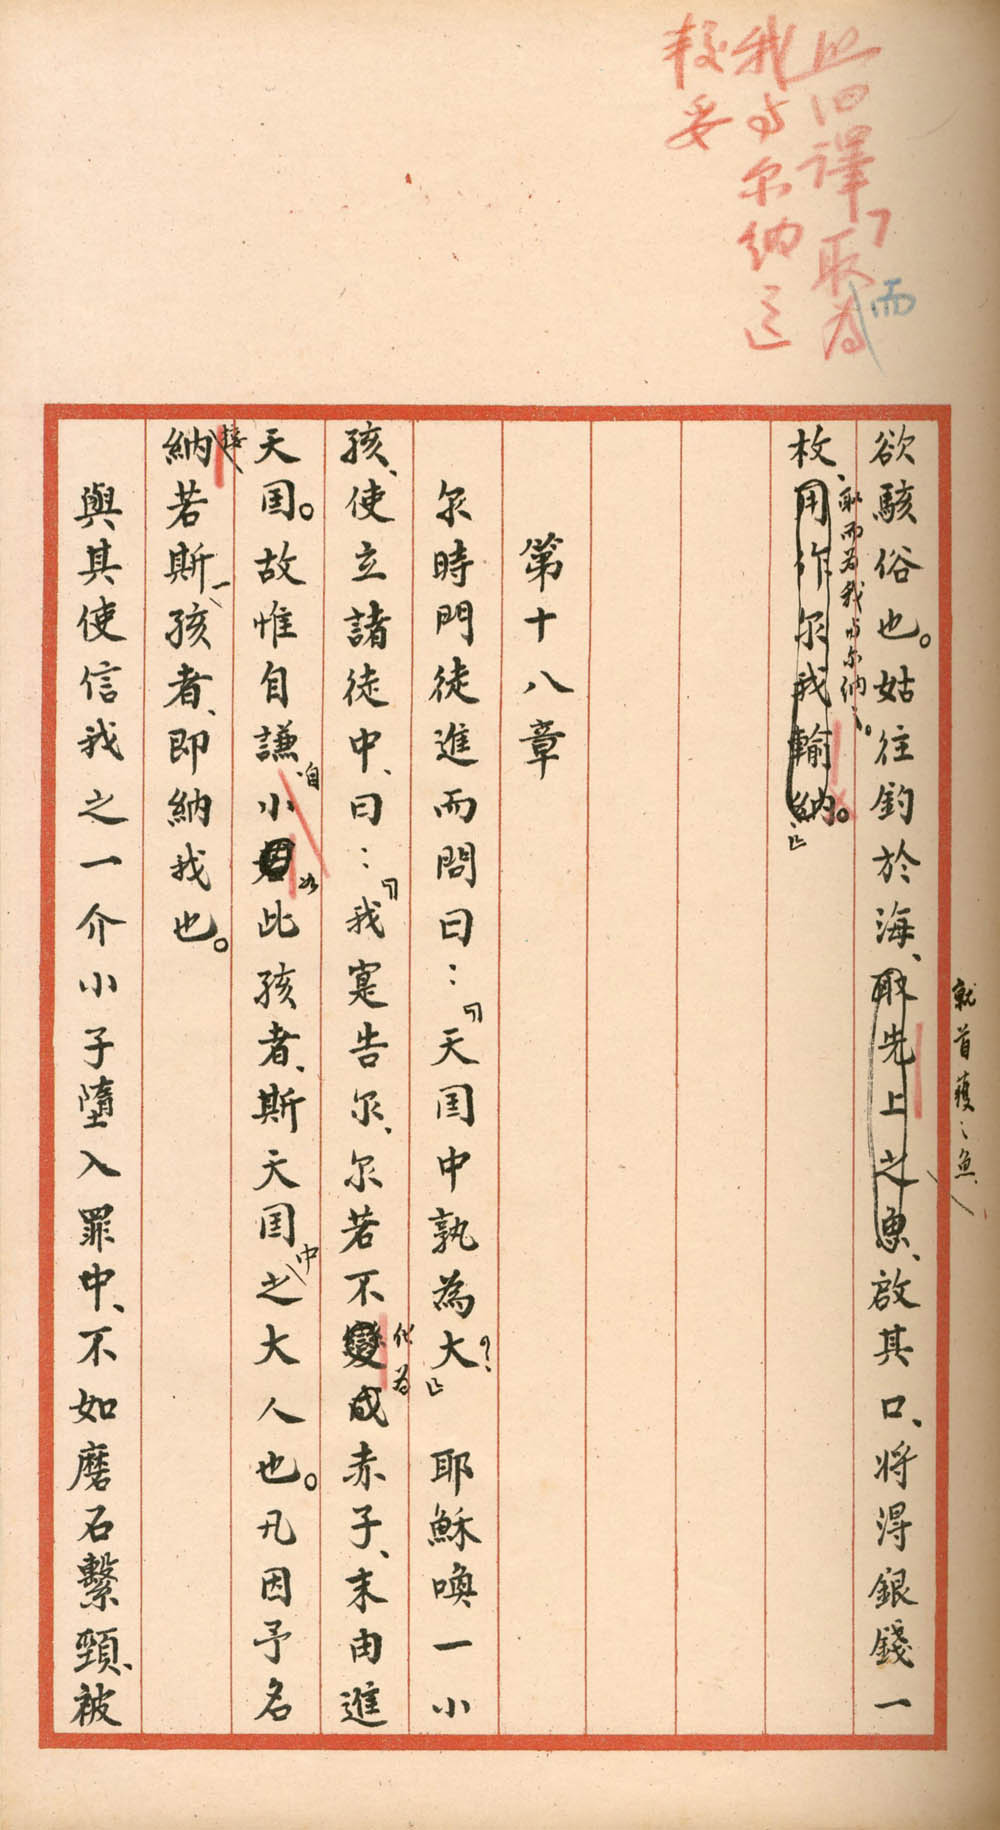 此旧譯取而為
我与尔纳一
較妥
就首獲之魚
欲駭俗也。姑往釣於海、取先上之魚、啟其口、將得銀錢一
取而為我与尔纳之。
枚、用作尔我輸納。」
第十八章
尔時門徒進而問曰：『天国中孰為大？」耶穌喚一小
孩、使立諸徒中、曰：『我寔告尔、尔若不變成赤子、末由進
化為
天国。故惟自謙自小如此孩者、斯天国中之大人也。凡因予名
接
納若斯一孩者、即納我也。
與其使信我之一介小子墮入罪中、不如磨石繫頸、被